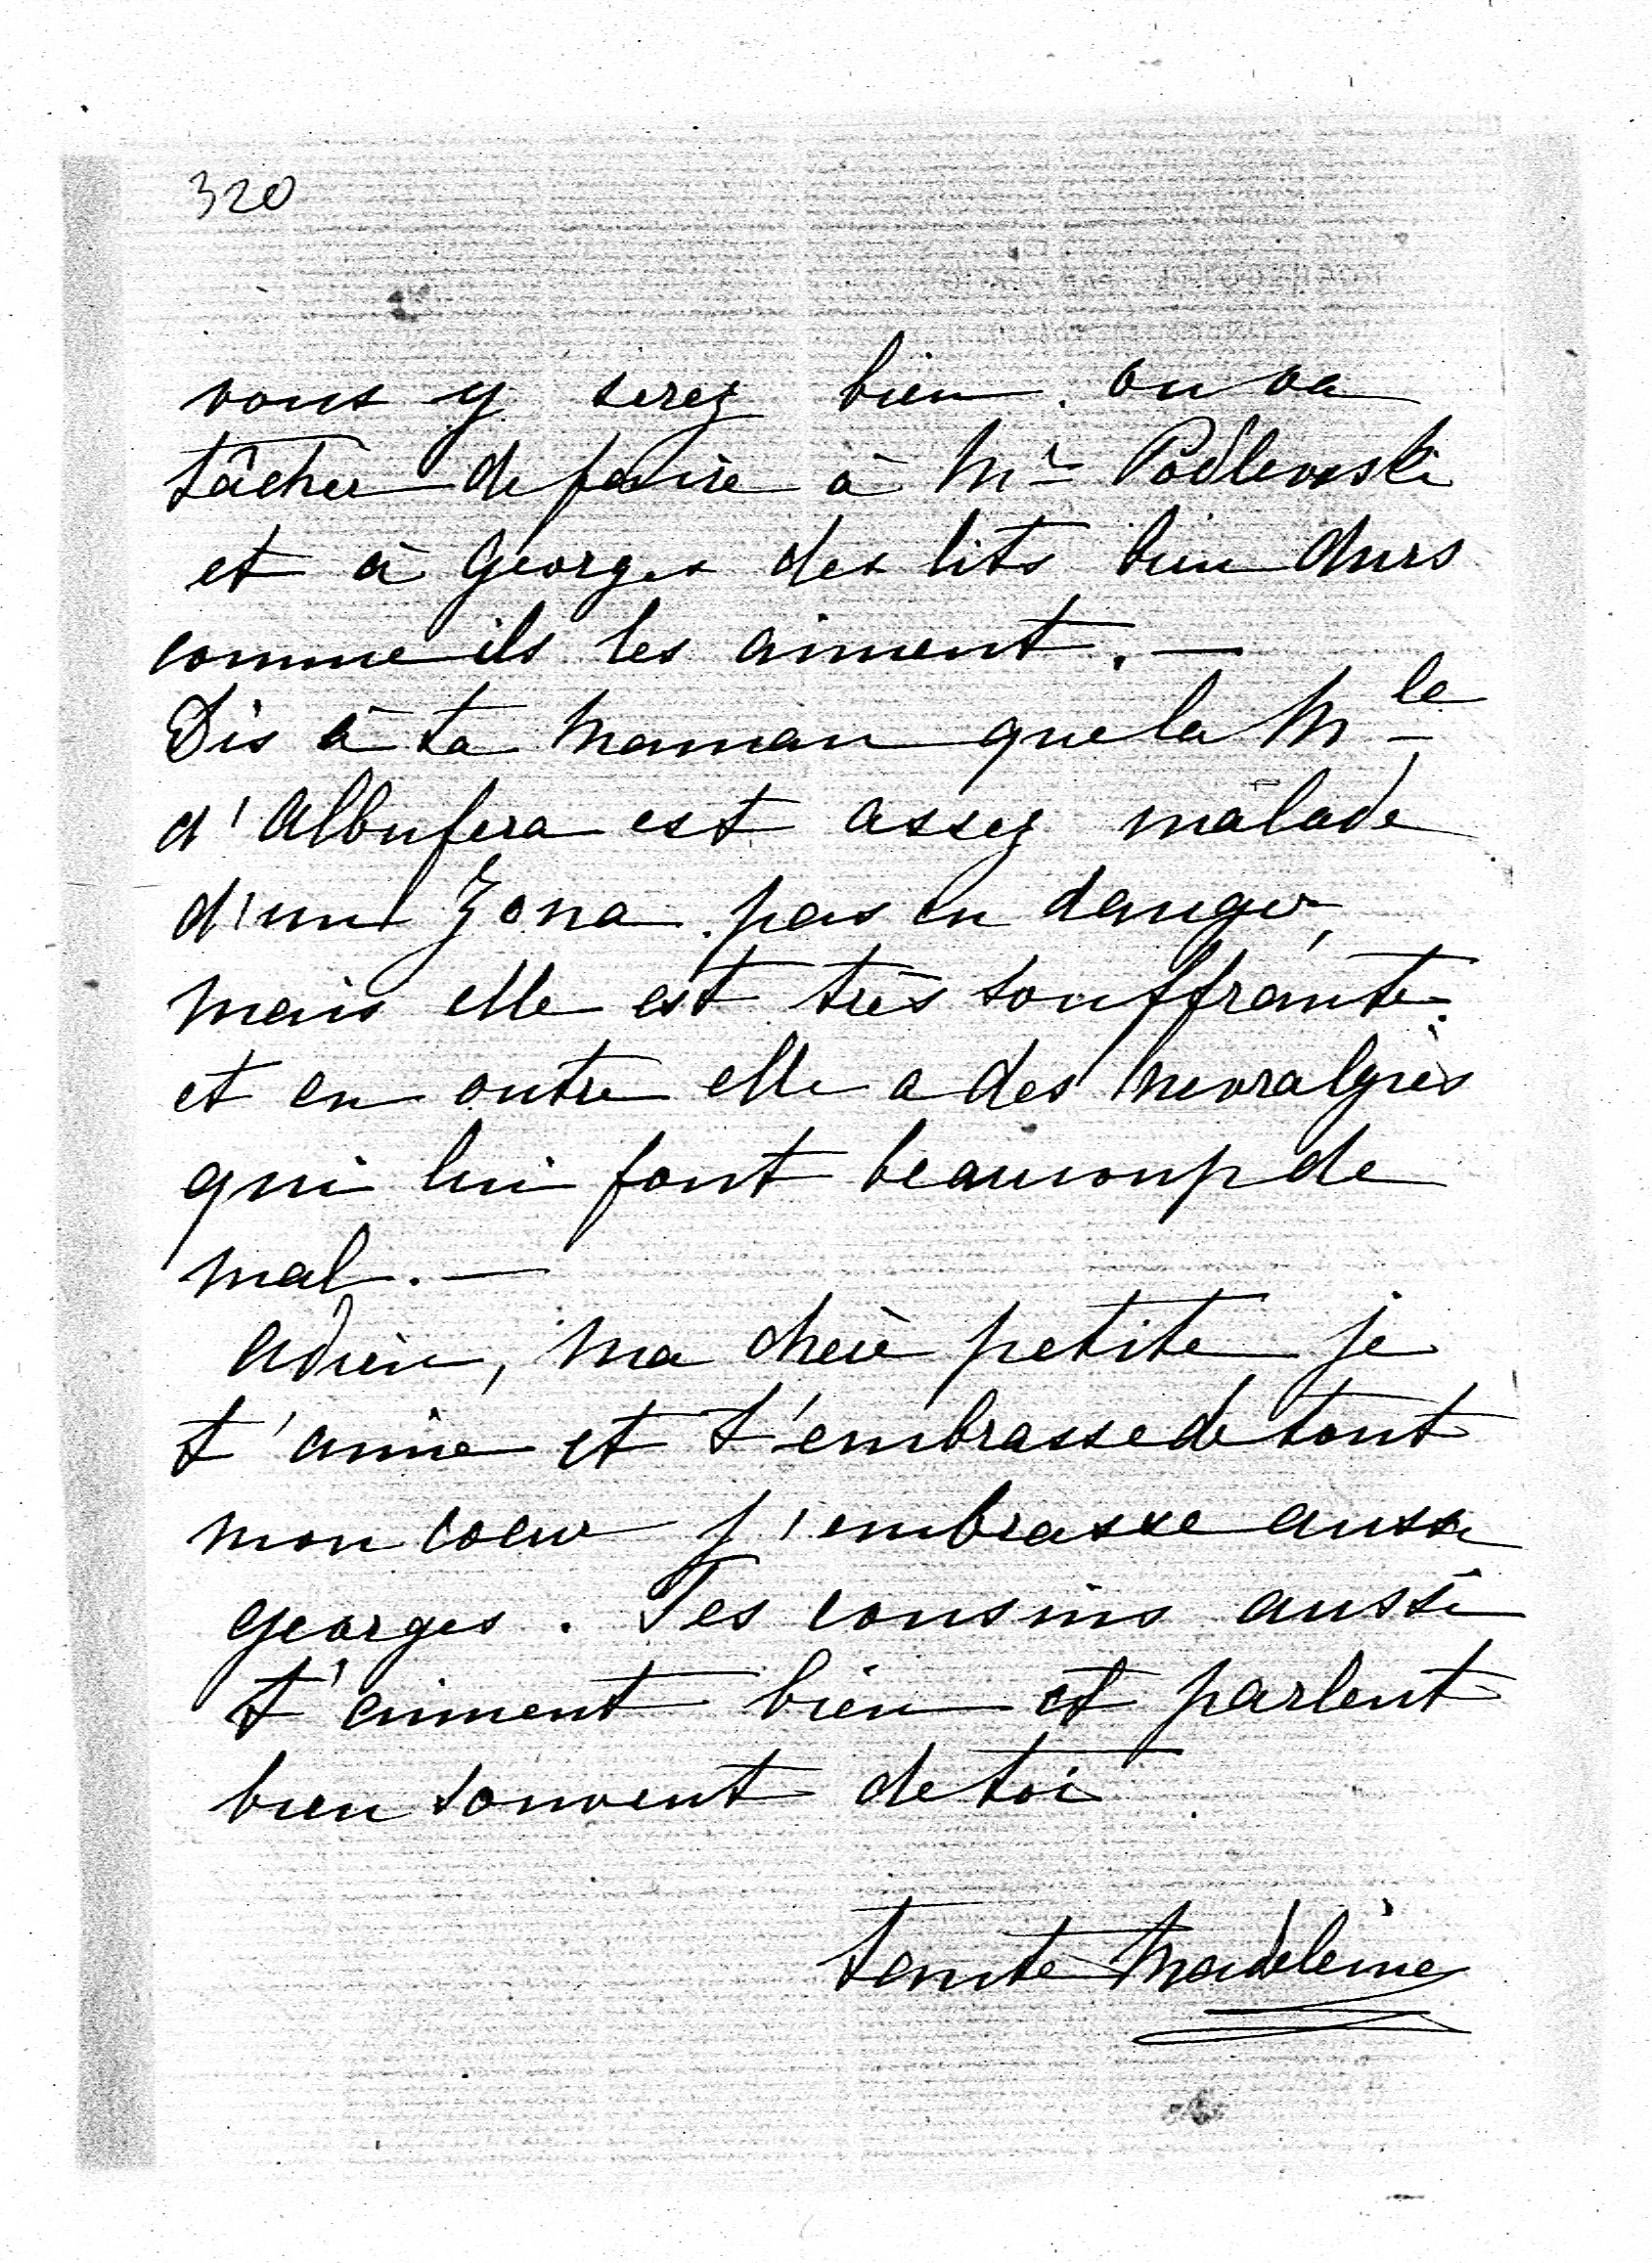 320
vous y serez bien. on va
tâcher de faire à Mr Podlewski
et à Georges des lits bien durs
comme ils les aiment. —
Dis à ta Maman que la Mle
d'Albufera est assez malade
d'un Zona. pas en danger,
mais elle est très souffrante.
et en outre elle a des nevralgies
qui lui font beaucoup de
mal. —
Adieu, ma chère petite je
t'aime et t'embrasse de tout
mon coeur j'embrasse aussi
Georges. Tes cousins aussi
t'aiment bien et parlent
bien souvent de toi
tante Madeleine